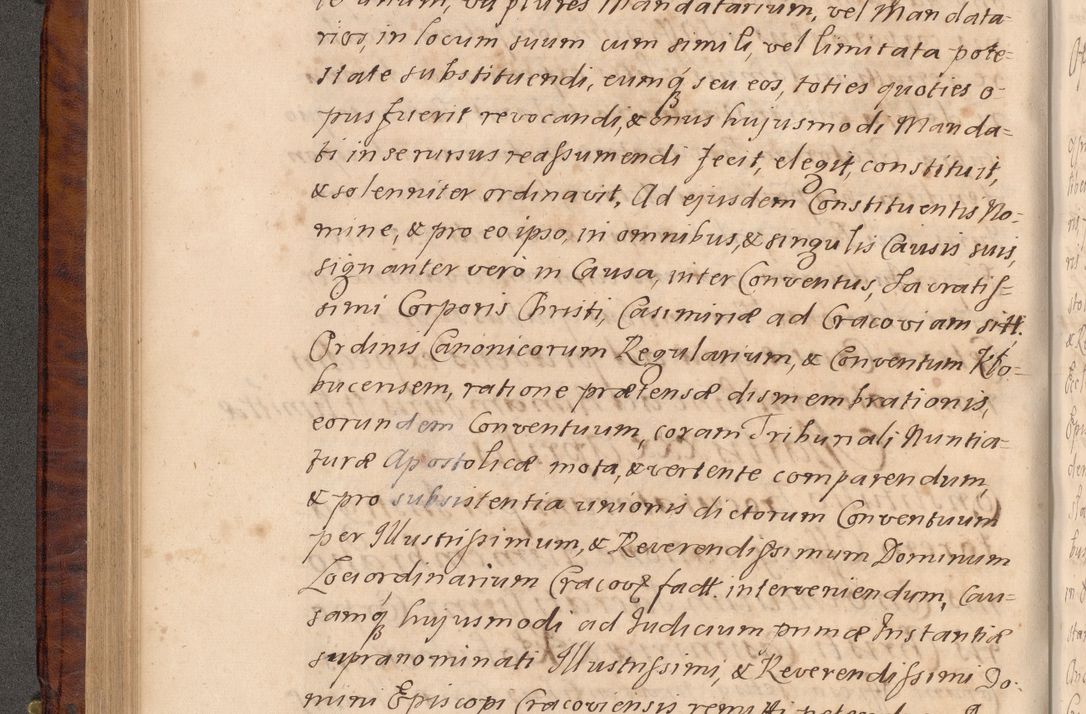 te unum, vel plures Mandatarium, vel Mandata-
rios, in locum suum cum simili, vel limitata pote-
state substituendi, eumq́ seu eos, toties quóties o-
pus fuerit revocandi, & onus hujusmodi Manda-
ti in se rursus reassumendi fecit, elegit, constituit,
& solenniter ordinavit, Ad ejusdem Constituentis No-
mine, & pro eo ipso, in omnibus, & singulis Causis suis,
signanter verò in Causa, inter Conventus, Sacratis-
simi Corporis Christi, Casimiriæ ad Cracoviam sitt.
Ordinis Canonicorum Regularium, & Conventum Kło-
bucensem, ratione prætensæ dismembrationis,
eorundem Conventuum, coram Tribunali Nuntia-
turæ Apostolicæ mota, & vertente comparendum,
& pro subsistentia unionis dictorum Conventuum
per Illustrissimum, & Reverendissimum Dominum
Loci ordinarium Cracov̄ factt. interveniendum, Cau-
samq́ hujusmodi ad Iudicium primæ Instantiæ
supranominati Illustrissimi, & Reverendissimi Do-
mini Episcopi Cracoviensis remitti